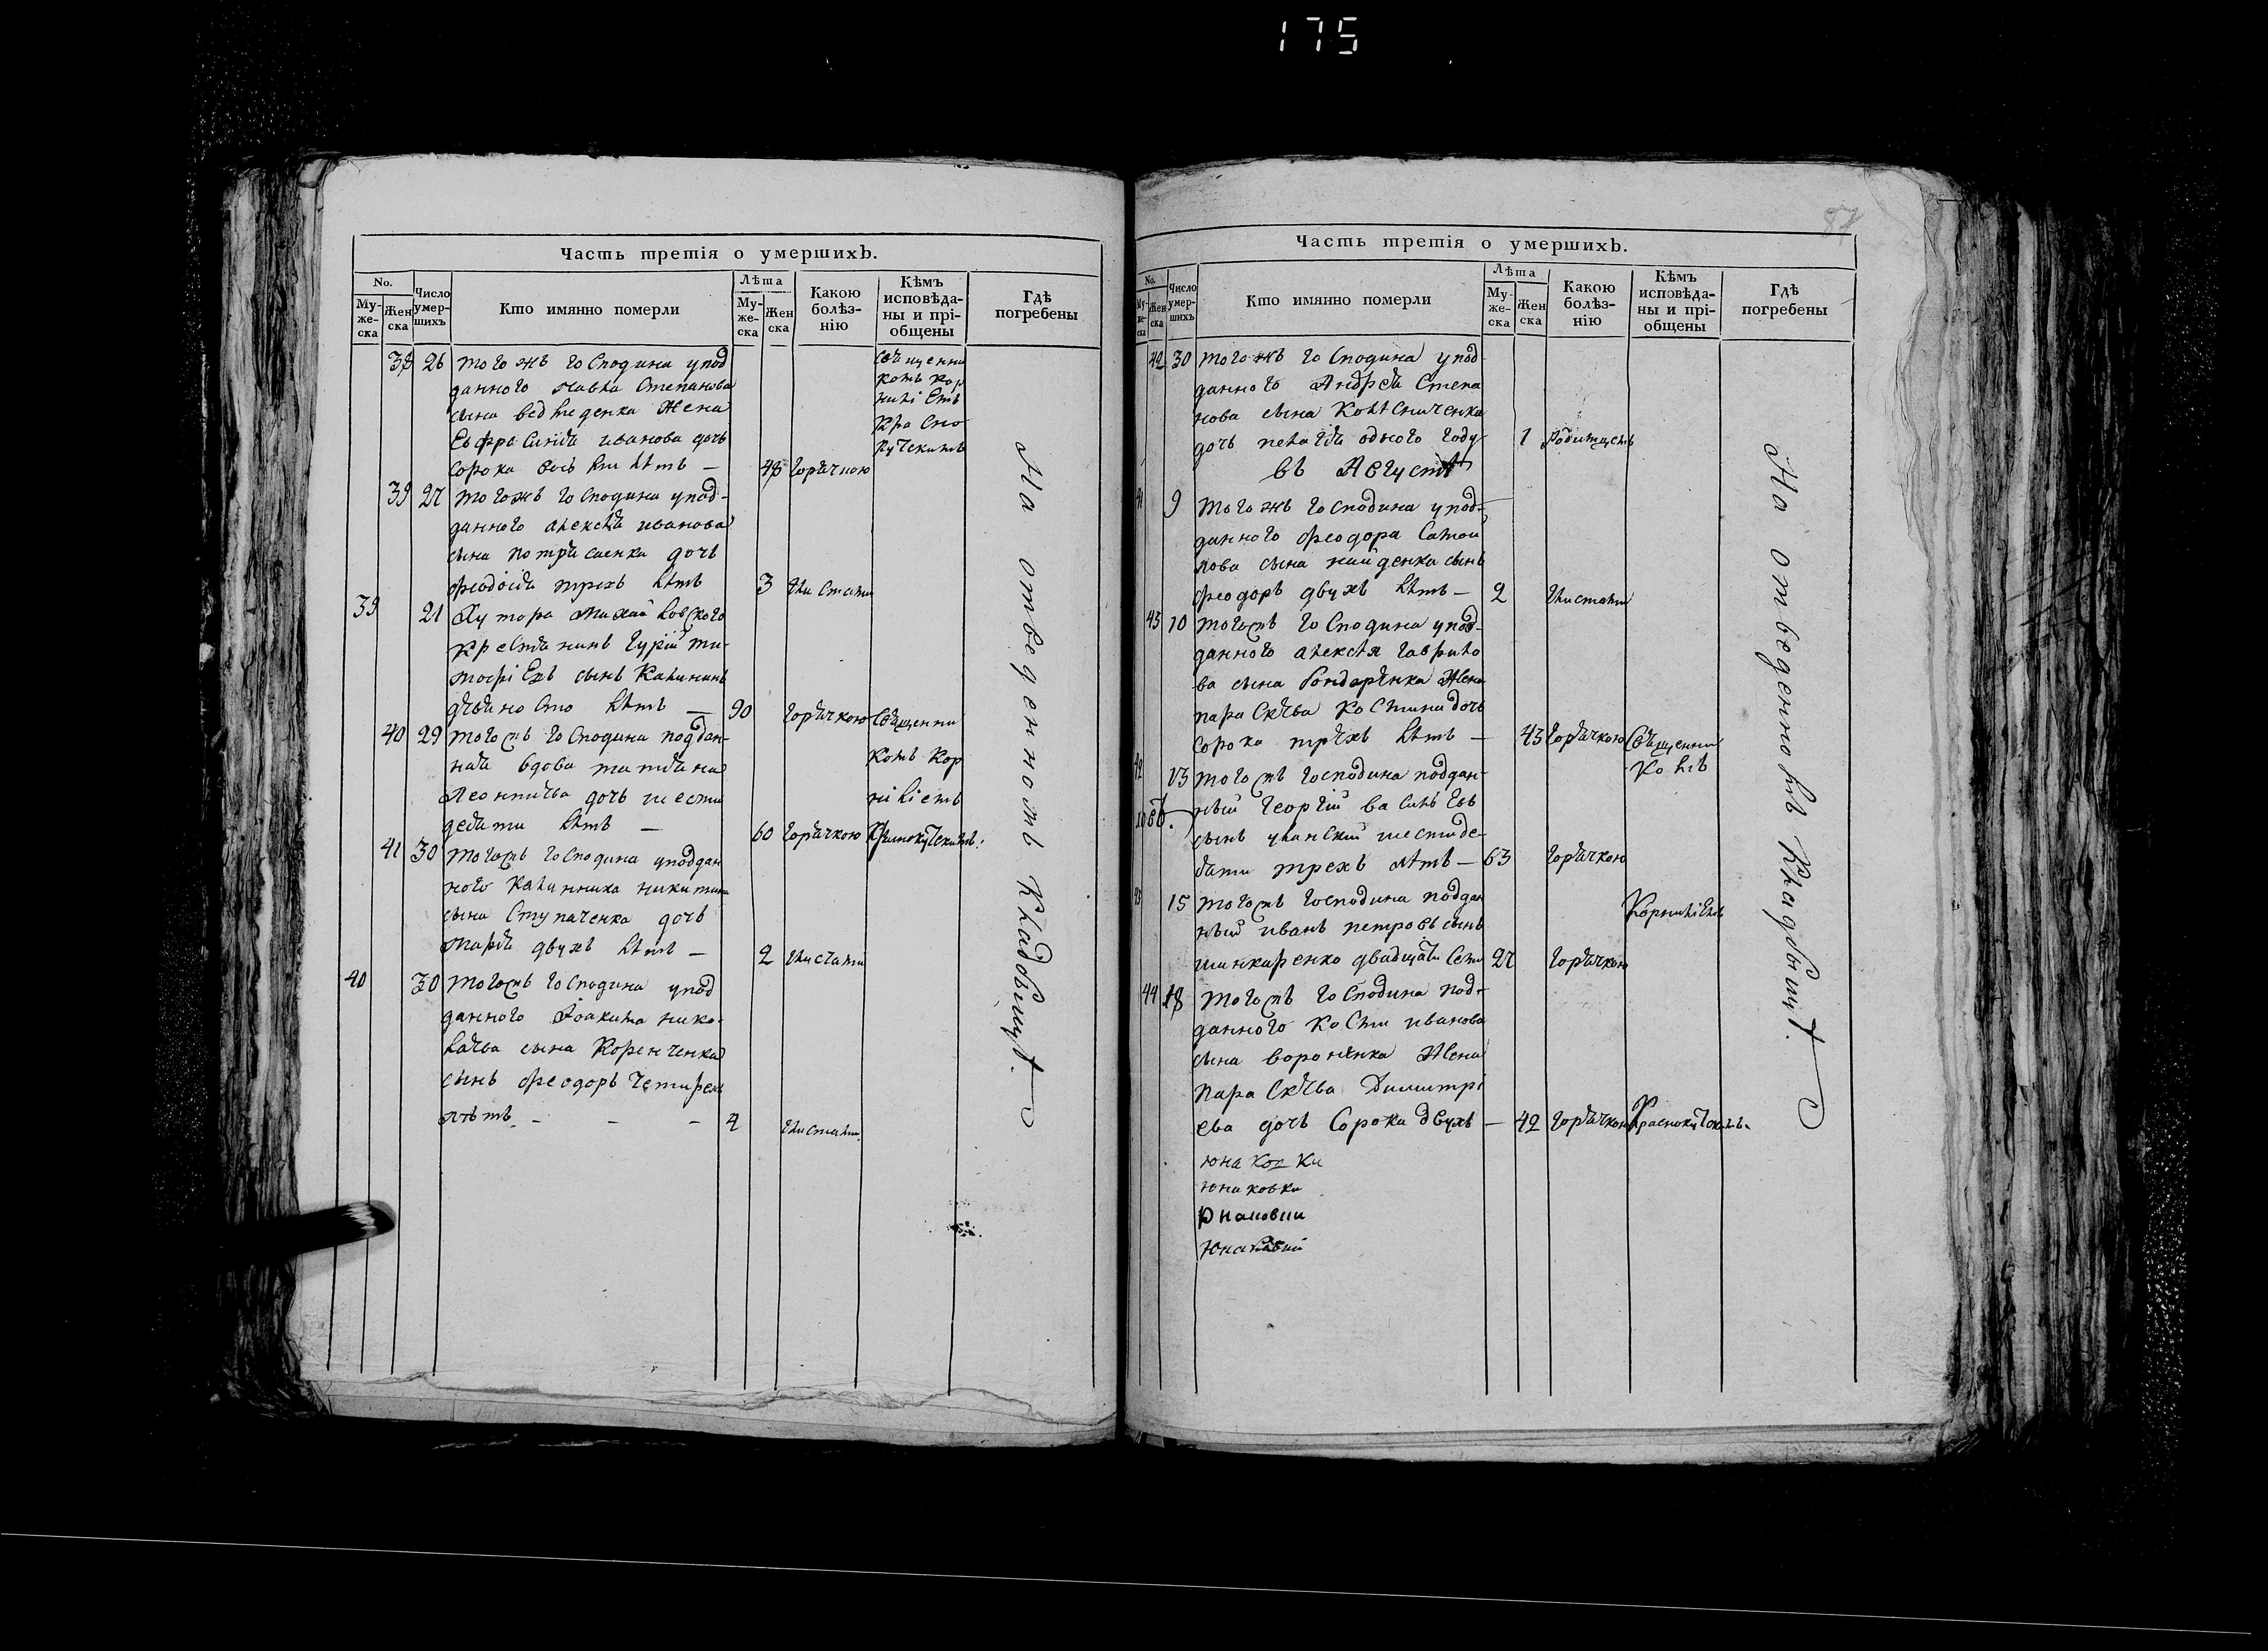 175
Часть третія о умершихъ.
No.
Му-
же-
ска
Жен
ска
Число
умер-
шихъ
Кто имянно померли
Лѣта
Му-
же-
ска
Жен
ска
Какою
болѣз-
нію
Кѣмъ
исповѣда-
ны и прі-
общены
Гдѣ
погребены
38 26 тогожъ господина упод
данного Павла Степанова
сына жена
Евфросинія иванова дочь
сорока восьми лѣтъ — 48 горячкою
священни
комъ Кор
ниліемъ
Красно
кутскимъ
39 27 тогожъ господина упод-
данного алексѣя иванова
сына дочь
феодосія трехъ лѣтъ 3 глистами
39 21 Хутора Михайловского
крестянинъ гурій ти-
мофіевъ сынъ Калининъ
девяносто лѣтъ — 90 горячкою священни
40 29 тогожъ господина поддан-
ная вдова татіяна
Леонтиева дочь шести
десяти лѣтъ — 60 горячкою
комъ Кор
ниліемъ
41 30 тогожъ господина упoддан
ного калинника никитина
сына Ступаченка дочь
марія двухъ лѣтъ — 2 глистами
40 30 тогожъ господина упод
данного Іоакима нико-
лаева сына Коренченка
сынъ феодоръ четирехъ
лѣтъ - - - 4 глистами
На отведенномъ кладбищѣ.
87
Часть третія о умершихъ.
No.
Му-
же-
ска
Жен
ска
Число
умер-
шихъ
Кто имянно померли
Лѣта
Му-
же-
ска
Жен
ска
Какою
болѣз-
нію
Кѣмъ
исповѣда-
ны и прі-
общены
Гдѣ
погребены
42 30 тогожъ господина упод-
данного Андрея Степа
нова сына Колѣсниченка
дочь пелагія одного году 1 родимцемъ
въ Августѣ
41 9 тогожъ господина упод-
данного феодора Самои
лова сына найденка сынъ
феодоръ двухъ лѣтъ — 2 глистами
43 10 тогожъ господина упод-
данного алексѣя гаврило
ва сына бондаренка жена
параскева костина дочь
сорока трехъ лѣтъ — 43 горячкою священни
комъ
42 13 тогожъ господина поддан-
ный георгій василь евъ
сынъ уланский шестиде-
сяти трехъ лѣтъ — 63 горячкою
43 15 тогожъ господина поддан
ный иванъ петровъ сынъ
шинкаренко двадцати семи 27 горячкою
Корниліемъ
44 18 тогожъ господина под-
данного кости иванова
сына вороненка жена
параскева Димитрі
ева дочь сорока двухъ — 42 горячкою
Краснокутскимъ
юнаковки
На отведенномъ кладбищѣ.